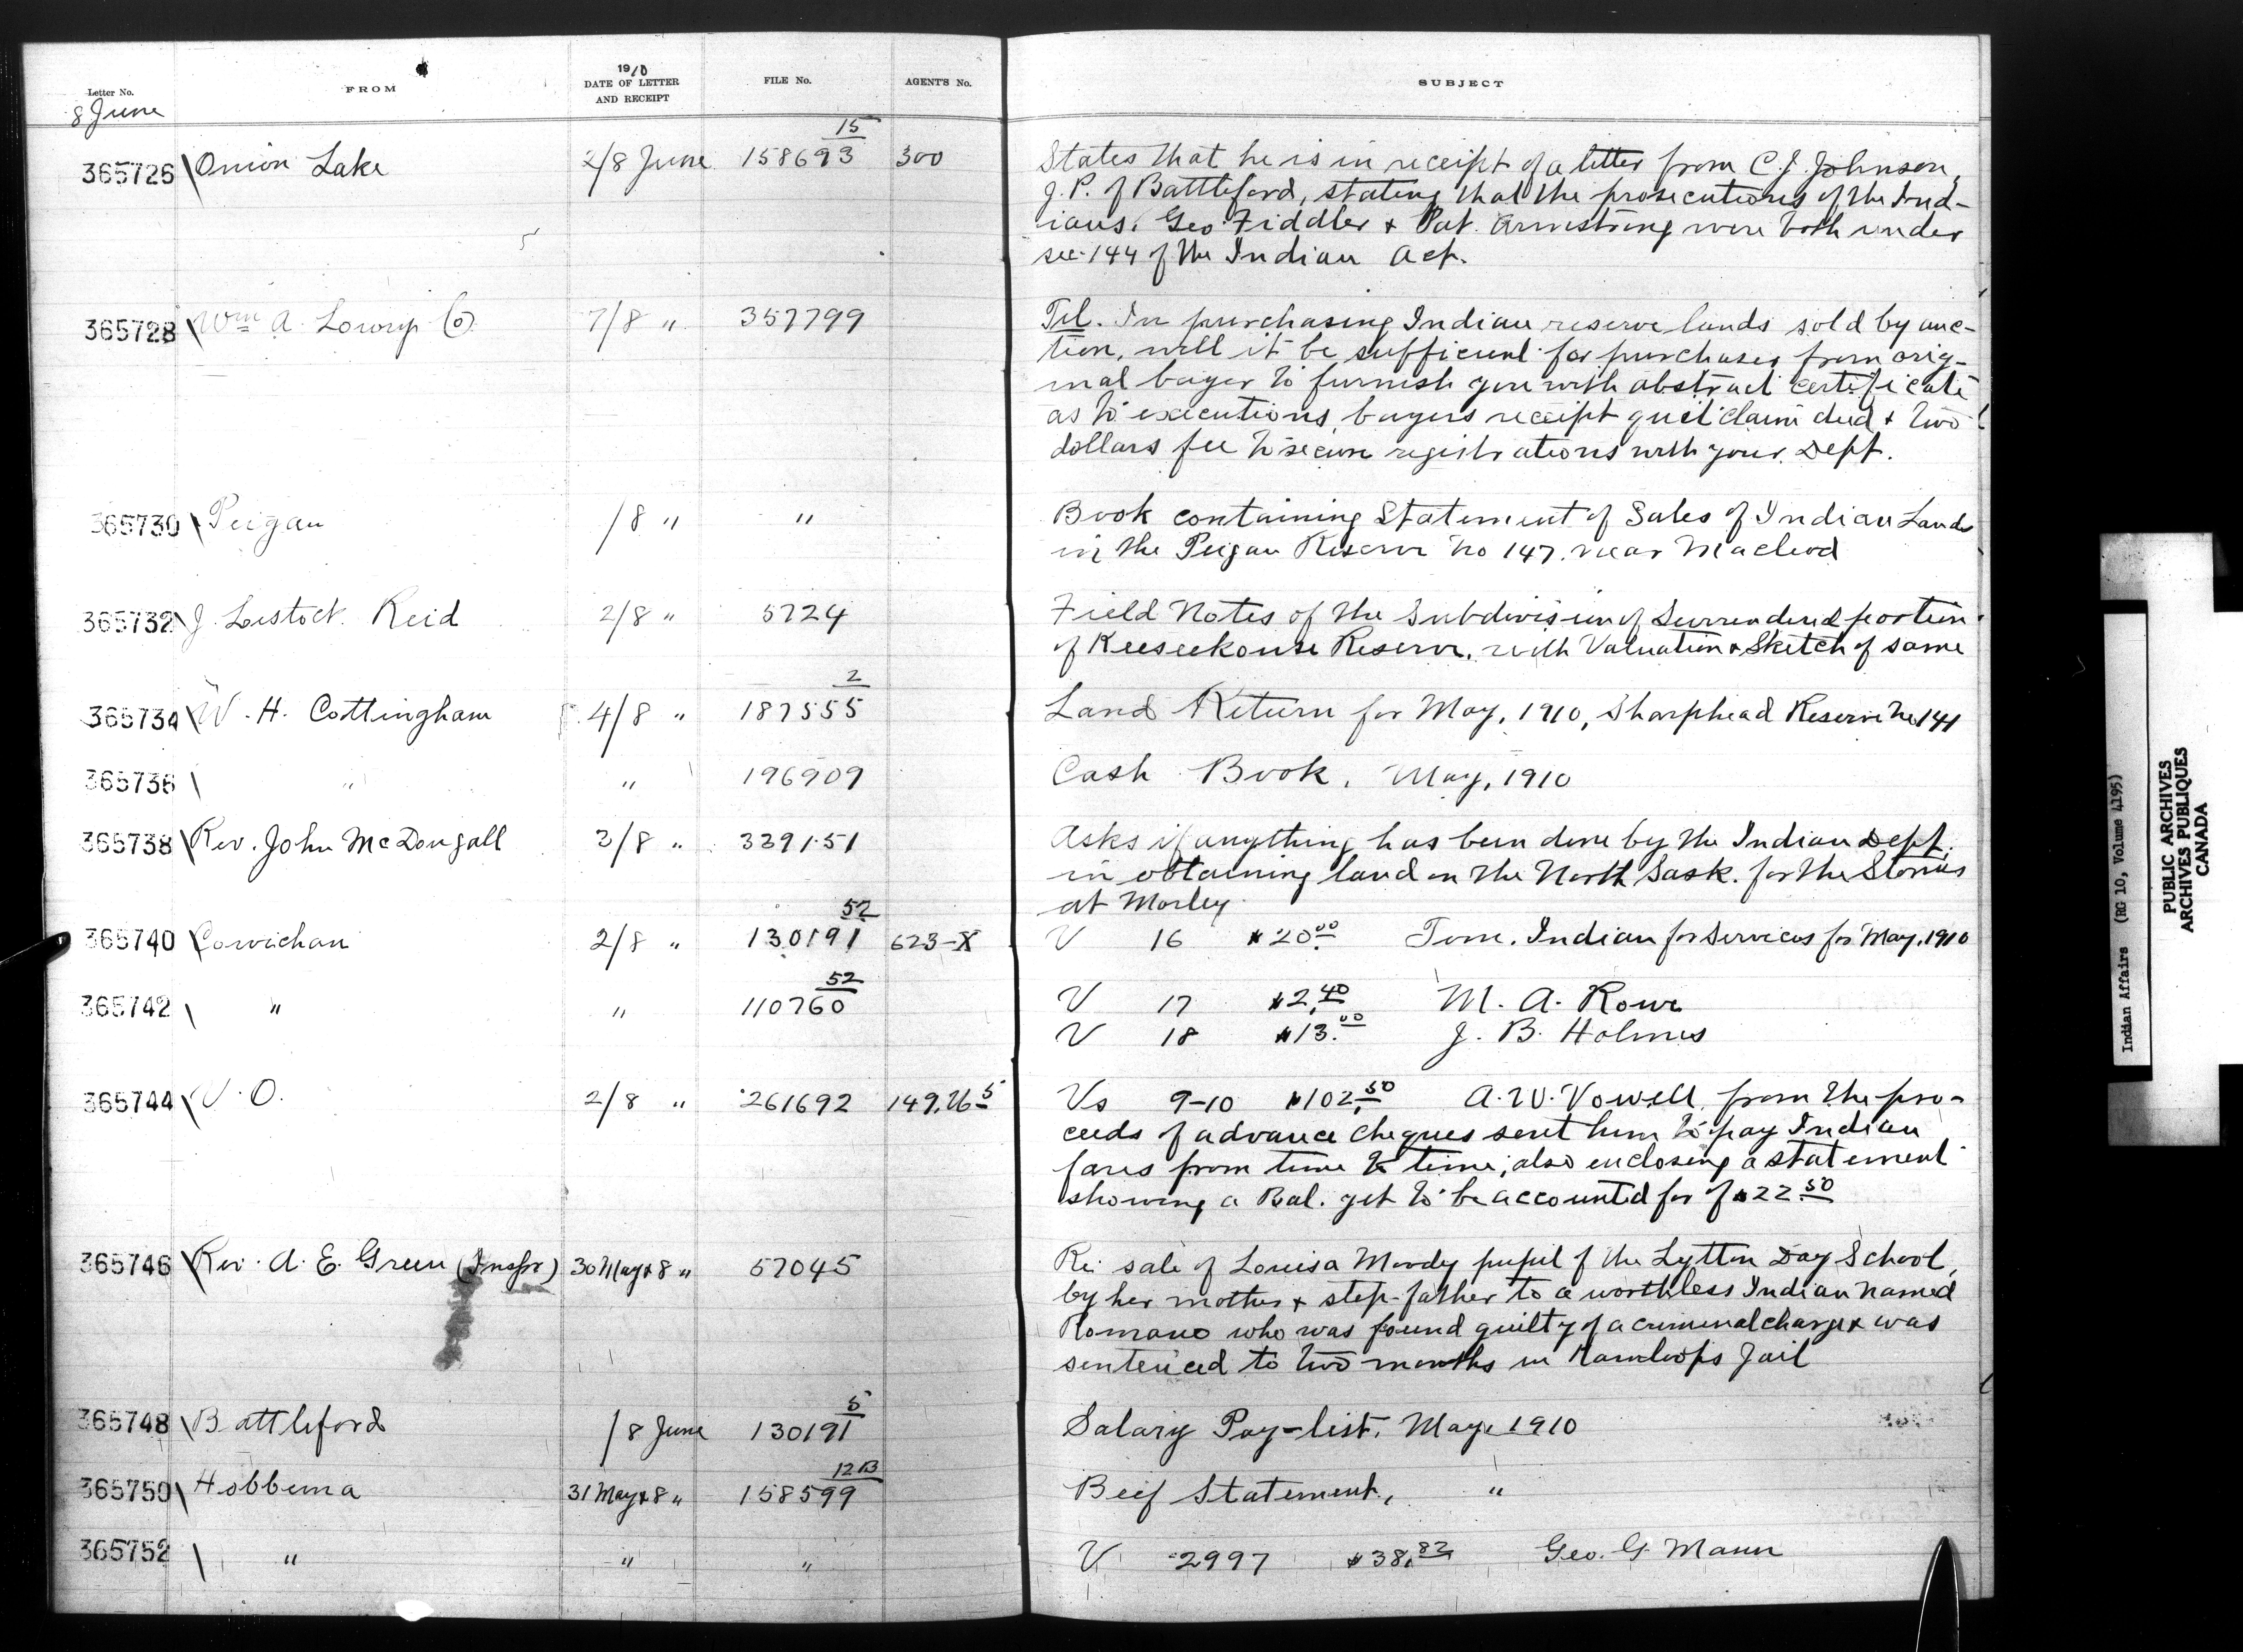 Letter No. FROM 1910 DATE OF LETTER AND RECEIPT FILE No. AGENT'S No. SUBJECT
8 June
365726 Onion Lake 2/8 June 158693 15 300 States that he is in receipt of a letter from C.J. Johnson,
J.P. of Battleford, stating that the prosecutions of the Ind-
ians. Geo Fiddler & Pat. Armstrong were both under
sec. 144 of the Indian Act.
365728 Wm A. Lowry Co. 7/8 " 357799 Tel. In purchasing Indian reserve lands sold by auc-
tion, will it be sufficient for purchases from orig-
inal buyer to furnish you with abstract certificate
as to executions, buyers receipt quit claim deed & two
dollars fee to secure registrations with your Dept.
365730 Peigan /8 " " Book containing Statement of Sales of Indian Lands
in the Peigan Reserve No 147. near Macleod
365732 J. Lestock Reid 2/8 " 5724 Field Notes of the Subdivision of Surrendered portion
of Keeseekouse Reserve, with Valuation & Sketch of same
365734 W. H. Cottingham 4/8 " 187555 2 Land Return for May, 1910, Sharphead Reserve No 141
365736 " " 196909 Cash Book, May, 1910
365738 Rev. John McDougall 3/8 " 339151 Asks if anything has been done by the Indian Dept.
in obtaining land on the North Sask. for the Stonies
at Morley
365740 Cowichan 2/8 " 130191 52 623-X V 16 $20.00 Tom. Indian for services for May, 1910
365742 " " 110760 52 V 17 $2.40 M. A. Rowe
V 18 $13.00 J. B. Holmes
365744 V. O. 2/8 " 261692 Vs 9-10 $102.50 A. W. Vowell, from the pro-
ceeds of advance cheques sent him to pay Indian
fares from time to time; also enclosing a statement
showing a Bal. yet to be accounted for of $22.50
365746 Rev. A. E. Green (Inspr) 30 May & 8 " 57045 Re sale of Louisa Moody pupil of the Lytton Day School,
by her mother & step-father to a worthless Indian named
Romano who was found guilty of a criminal charge & was
sentenced to two months in Kamloops Jail
365748 Battleford /8 June 130191 5 Salary Pay-list, May 1910
365750 Hobbema 31 May & 8 " 158599 12B Beef Statement, "
365752 " " " V 2997 $38.82 Geo. G. Mann
Indian Affairs (RG 10, Volume 4195)
PUBLIC ARCHIVES
ARCHIVES PUBLIQUES
CANADA